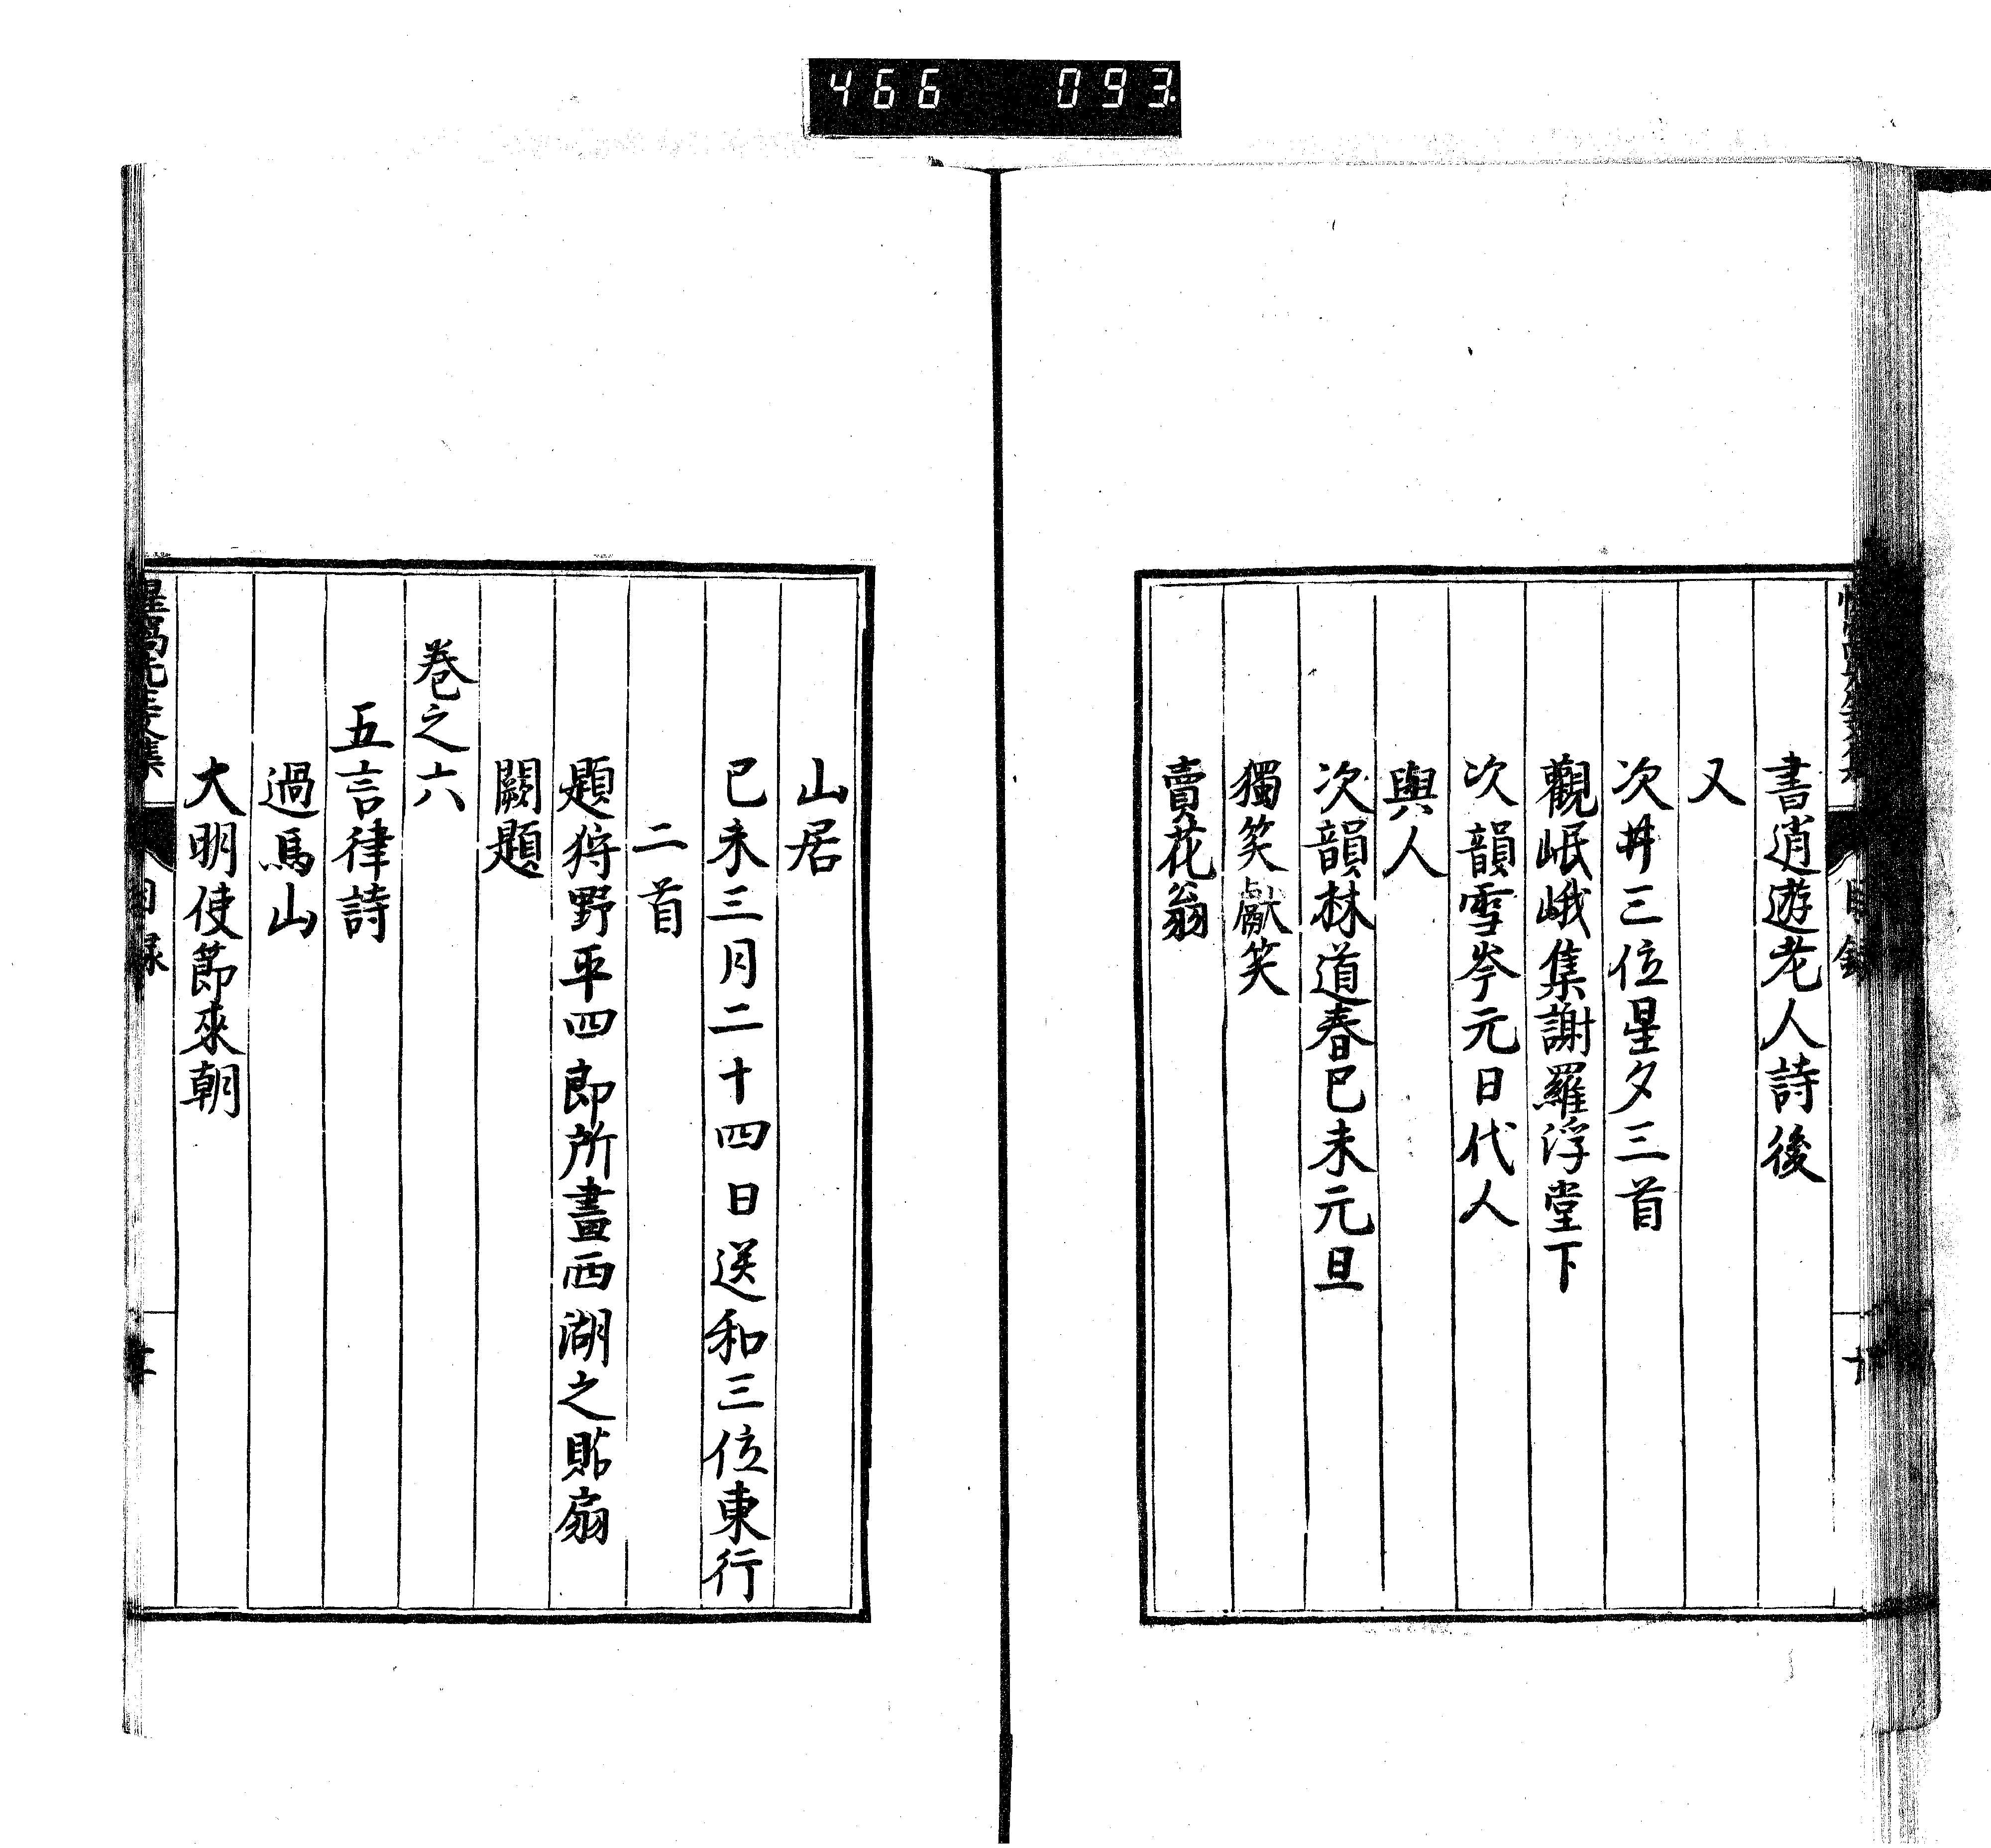 466 093
書逍遊老人詩後
又
次丼三位星夕三首
觀岷峨集謝羅浮堂下
次韻雪岑元日代人
與人
次韻林道春己未元旦
獨笑獻笑
賣花翁
山居
己未三月二十四日送和三位東行
二首
題狩野平四郎所畫西湖之貼扇
闕題
卷之六
五言律詩
過馬山
大明使節來朝
目録